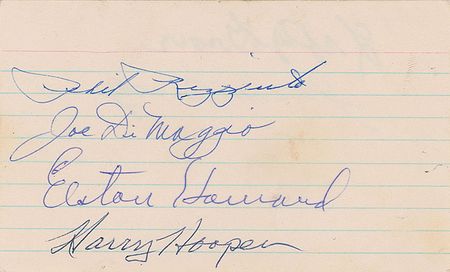 Phil Rizzuto
Joe Di Maggio
Elston Howard
Harry Hooper